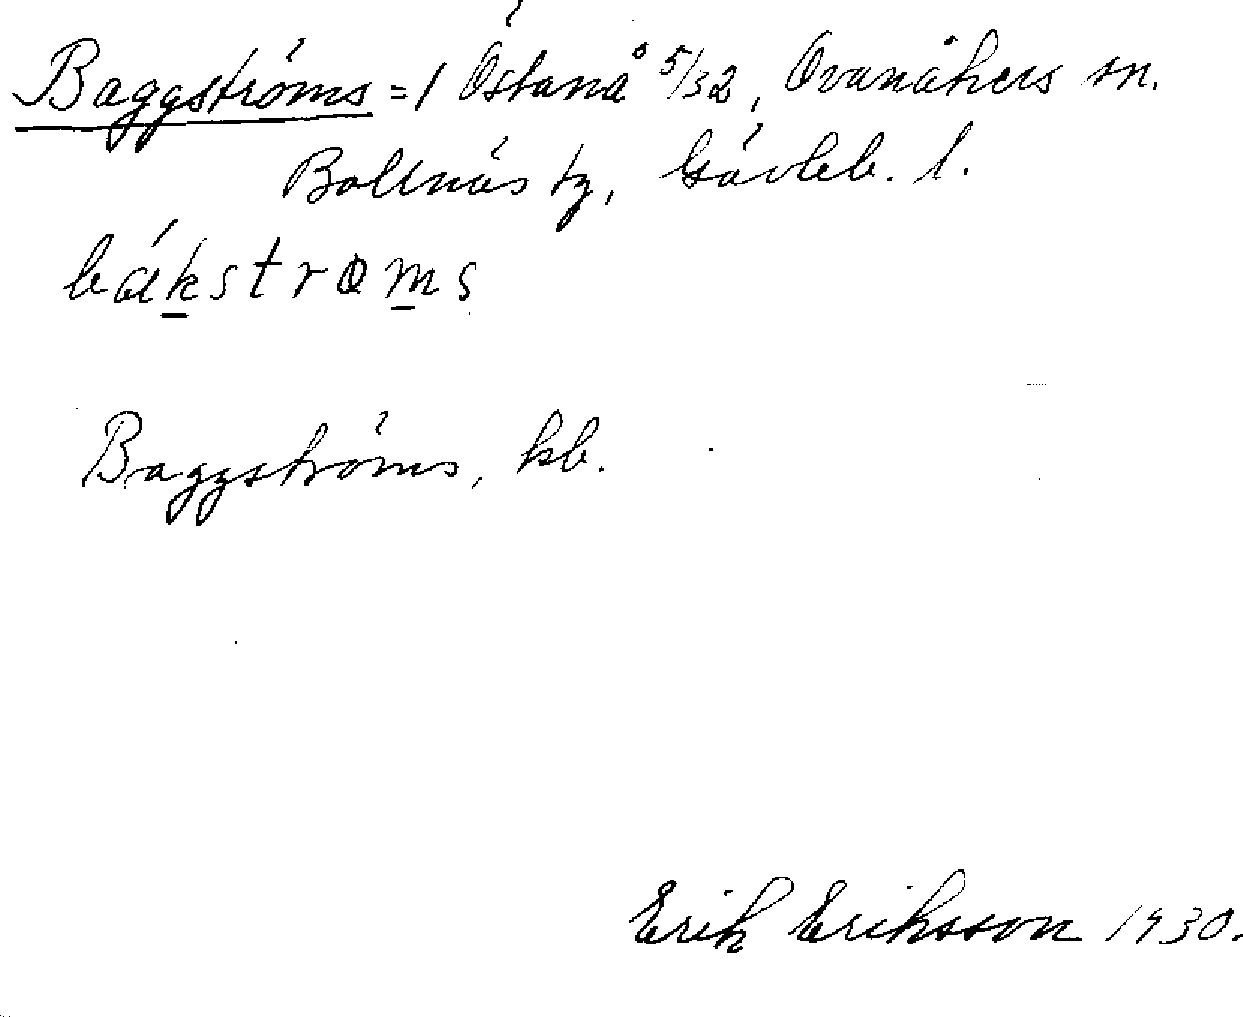 Baggströms = 1 Östanå 5/32, Ovanåkers sn.
Bollnäs tg, Gävleb. l.
bákstrøms
Baggströms, kb.
Erik Eriksson 1930.